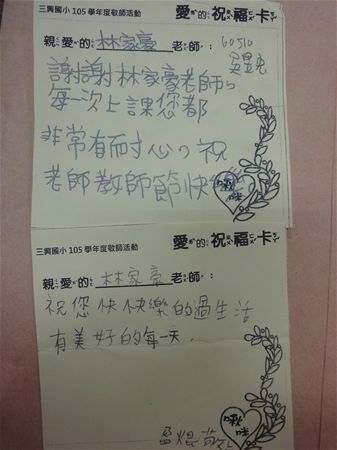 三興國小 105 學年度敬師活動
愛的祝福卡
親愛的 林家豪 老師：
60510
謝謝林家豪老師,
每一次上課您都
非常有耐心,祝
老師教師節快
啾咪
三興國小 105 學年度敬師活動
愛的祝福卡
親愛的 林家豪 老師：
祝您快快樂的過生活
有美好的每一天.
啾咪